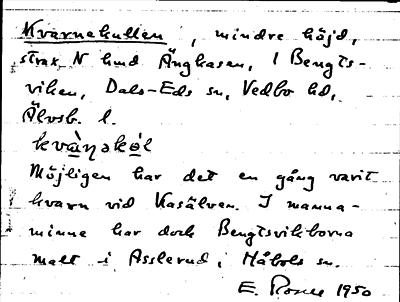 Kvarnekullen, mindre höjd,
strax N hmd Ängkasen, i Bengts-
viken, Dals-Eds sn, Vedbo hd,
Älvsb. l.
Möjligen har det en gång varit
kvarn vid Kasälven. I manna-
minne har dock Bengtsvikborna
malt i Asslerud, Håbols sn.
E. 1950